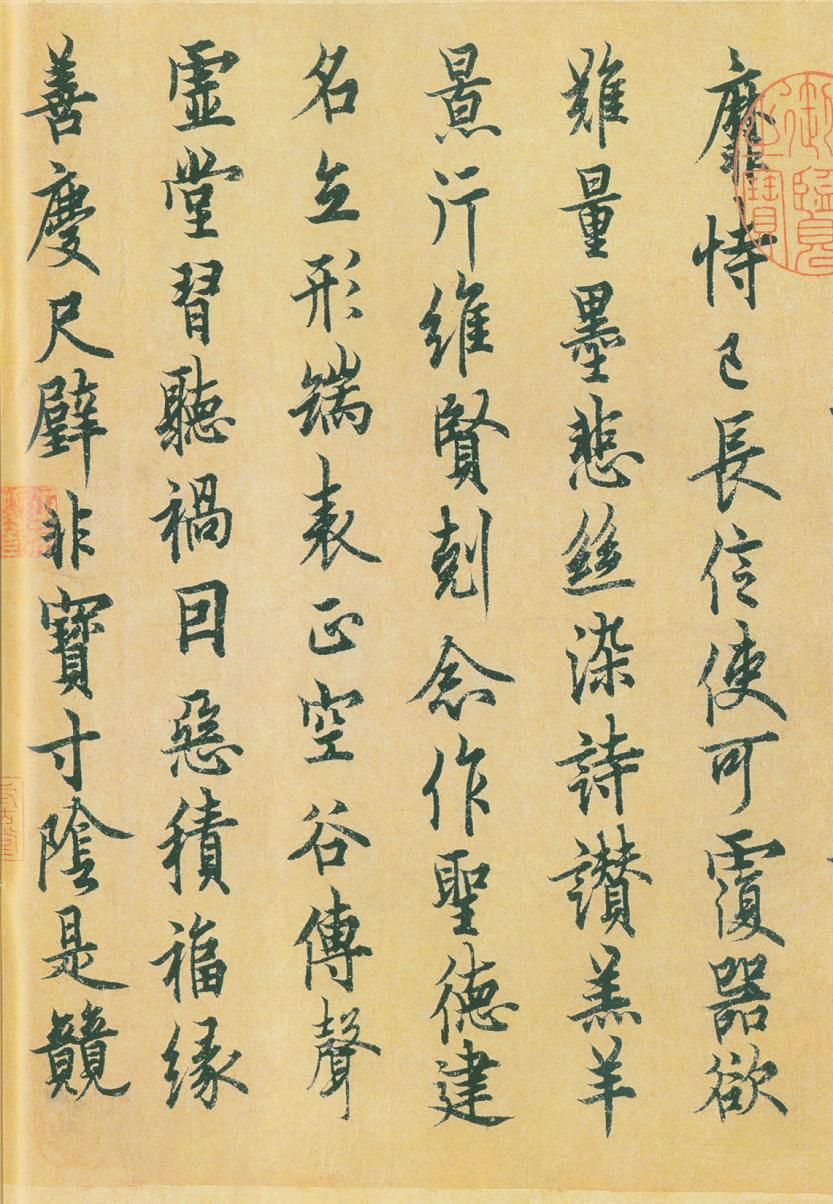 靡恃己長信使可覆器欲
難量墨悲絲染詩讃羔羊
景行維賢剋念作聖德建
名立形端表正空谷傳聲
虛堂習聽禍因惡積福緣
善慶尺璧非寶寸陰是競
御覽之寶